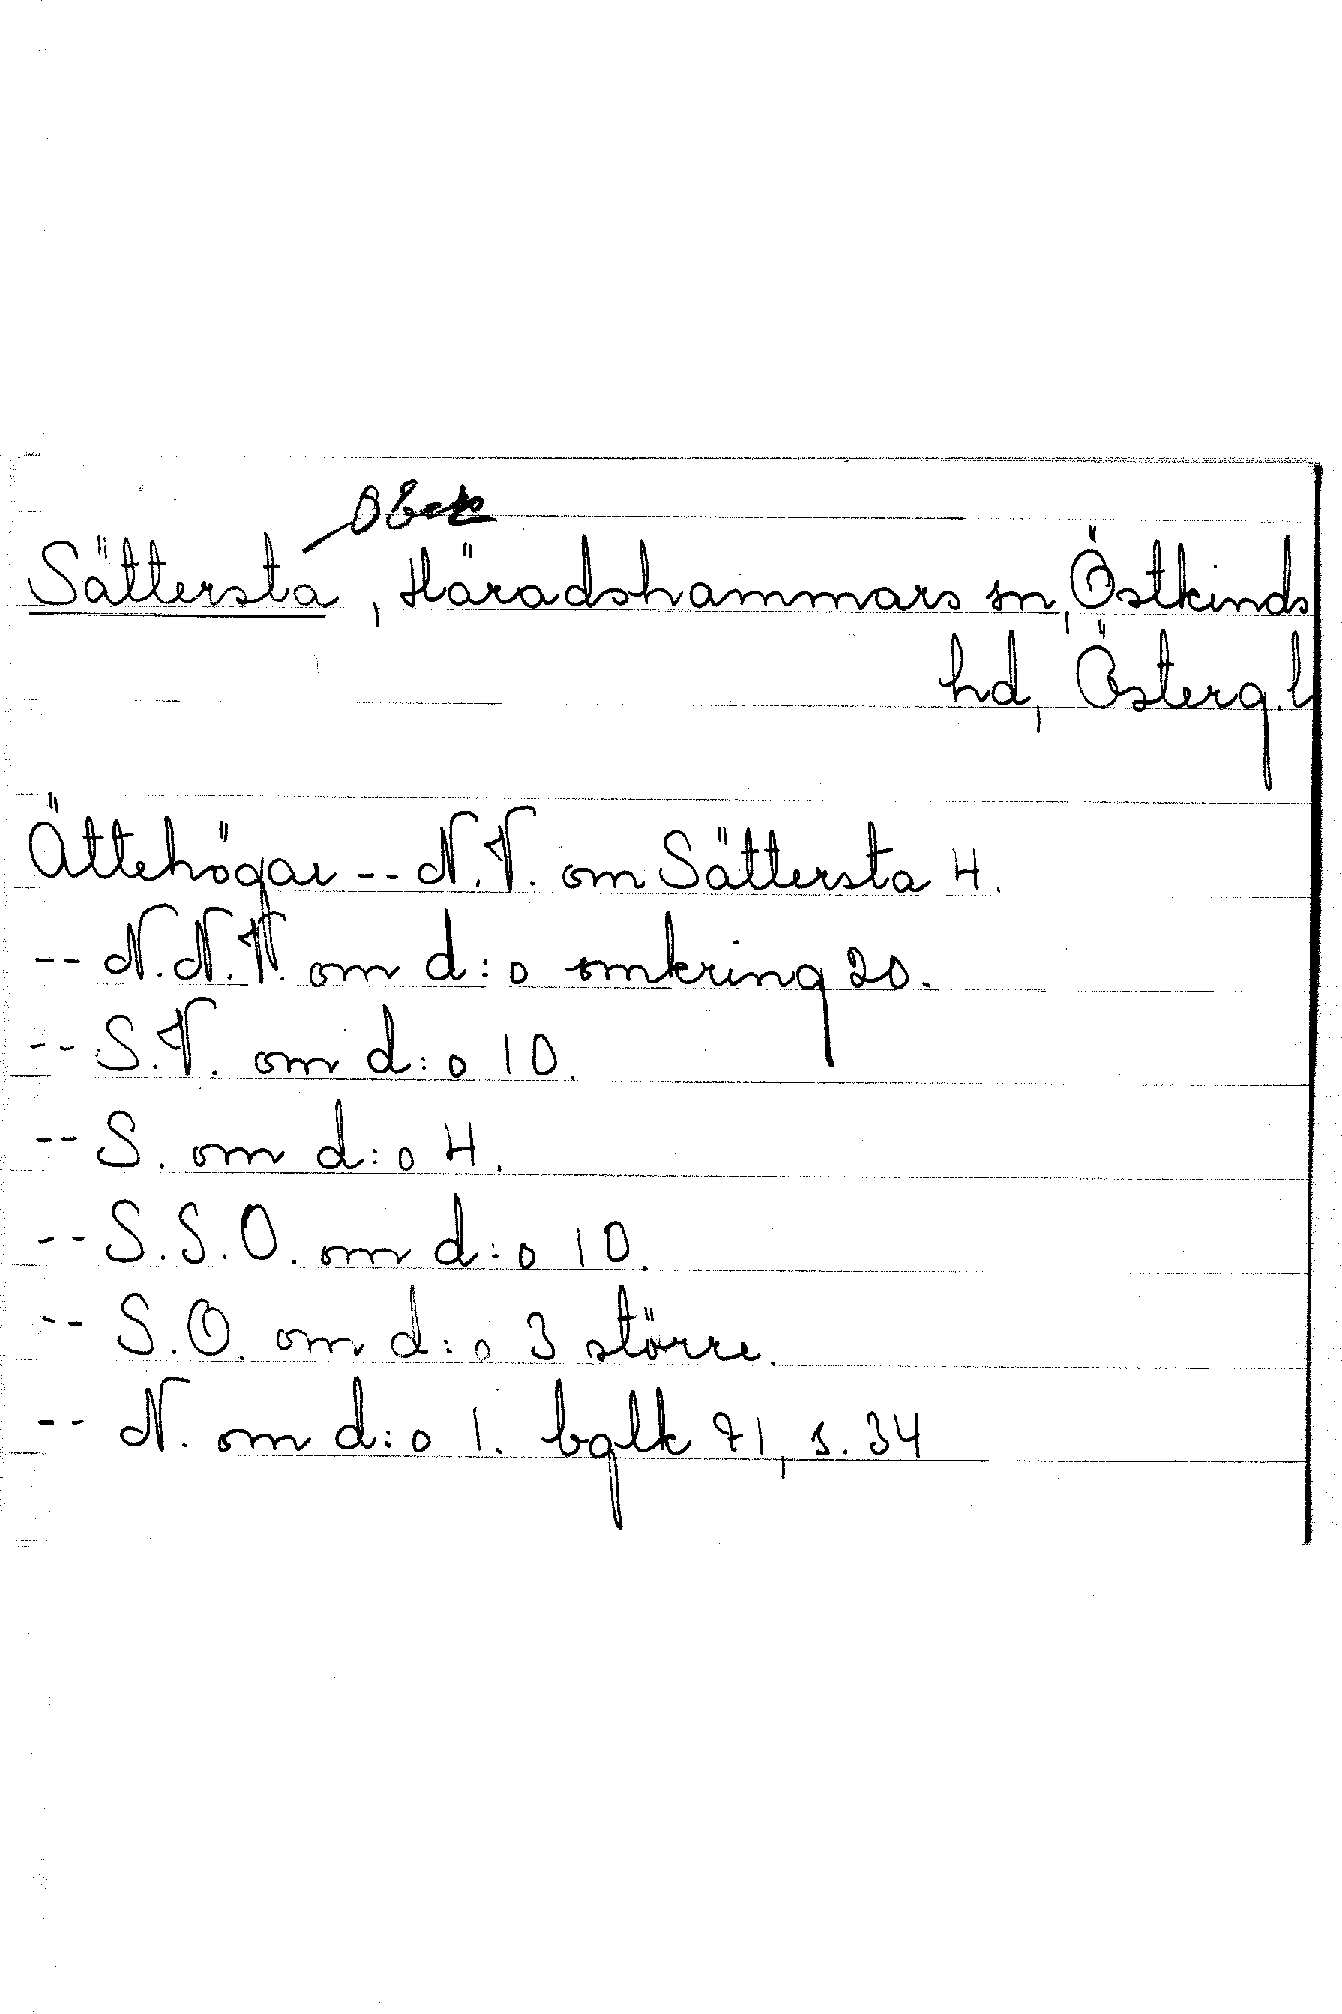 Obek
Sättersta, Häradshammars sn, Östkinds
hd, Österg. l
Ättehögar -- N.V. om Sättersta 4.
-- N.N.V. om d:o omkring 20.
-- S.V. om d:o 10.
-- S. om d:o 4.
-- S.S.O. om d:o 10.
-- S.O. om d:o 3 större.
-- N. om d:o 1. bglk 71, s. 34